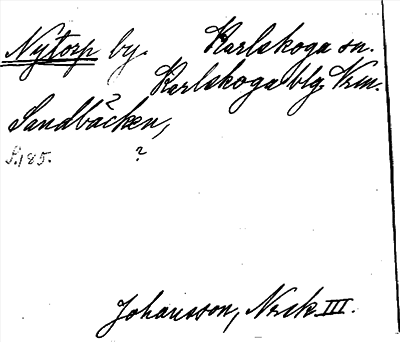 Nytorp by. Karlskoga sn.
Karlskoga blg. Vrm.
Sandbäcken,
S.185. ?
Johansson, Nrck III.